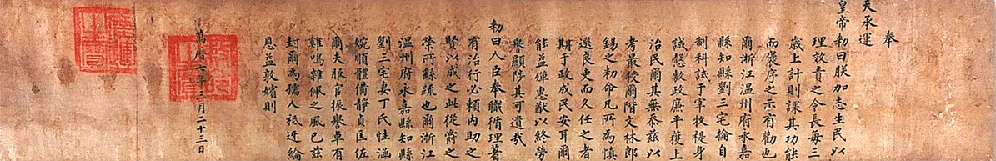 奉
天承運
皇帝勑曰朕加志生民以
理效責之令長每三
歲上計則課其功能
而褒序之示有勸也
爾浙江溫州府永嘉
縣知縣劉三宅掄自
制科試于軍牧提身
誠愨敷政廉平獲上
治民爾其無忝茲以
考最授爾階文林郎
錫之勑命凡所為慎
選良吏而久任之者
期于政成民安耳爾
能益殫惠猷以終勞
譽顯陟其可遺哉
勑曰人臣奉職循理著
有治行必賴內助之
賢以成之此從爵之
榮所繇逮也爾浙江
溫州府永嘉縣知縣
劉三宅妻丁氏性涵
婉順體備靜貞匡佐
爾夫服官振舉卓有
雞鳴雜佩之風已茲
封爾為孺人祗迓綸
恩益敦婦則
萬曆七年三月二十三日